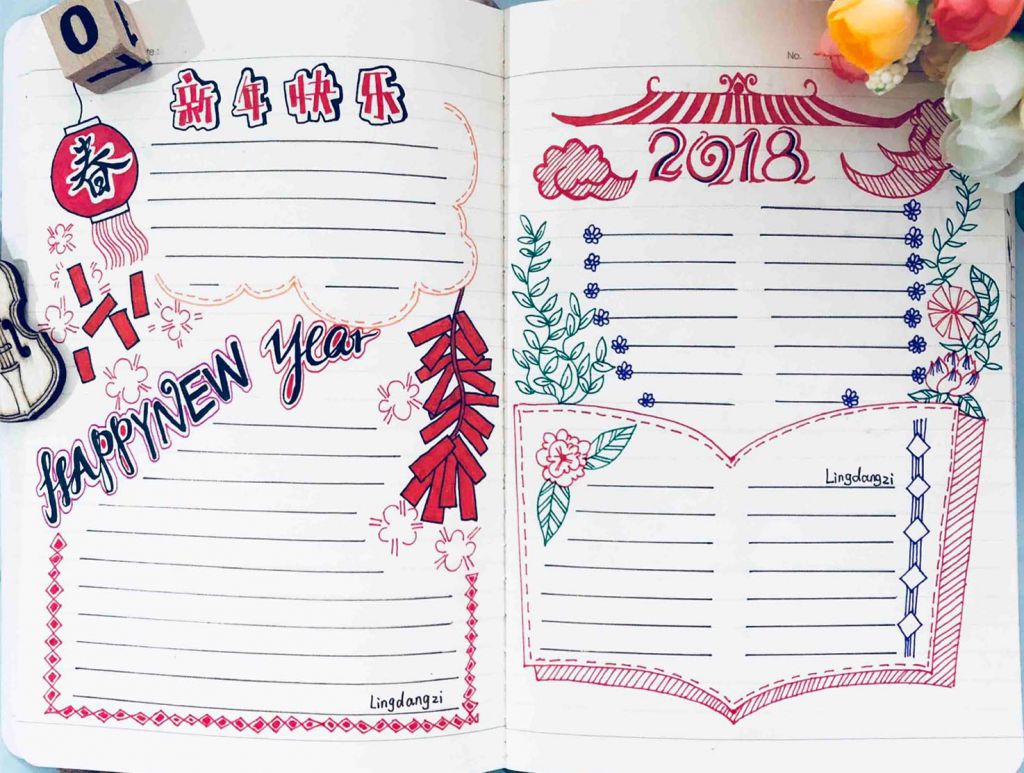 0
1
新年快乐
春
HAPPY NEW Year
Lingdangzi
No.
2018
Lingdangzi